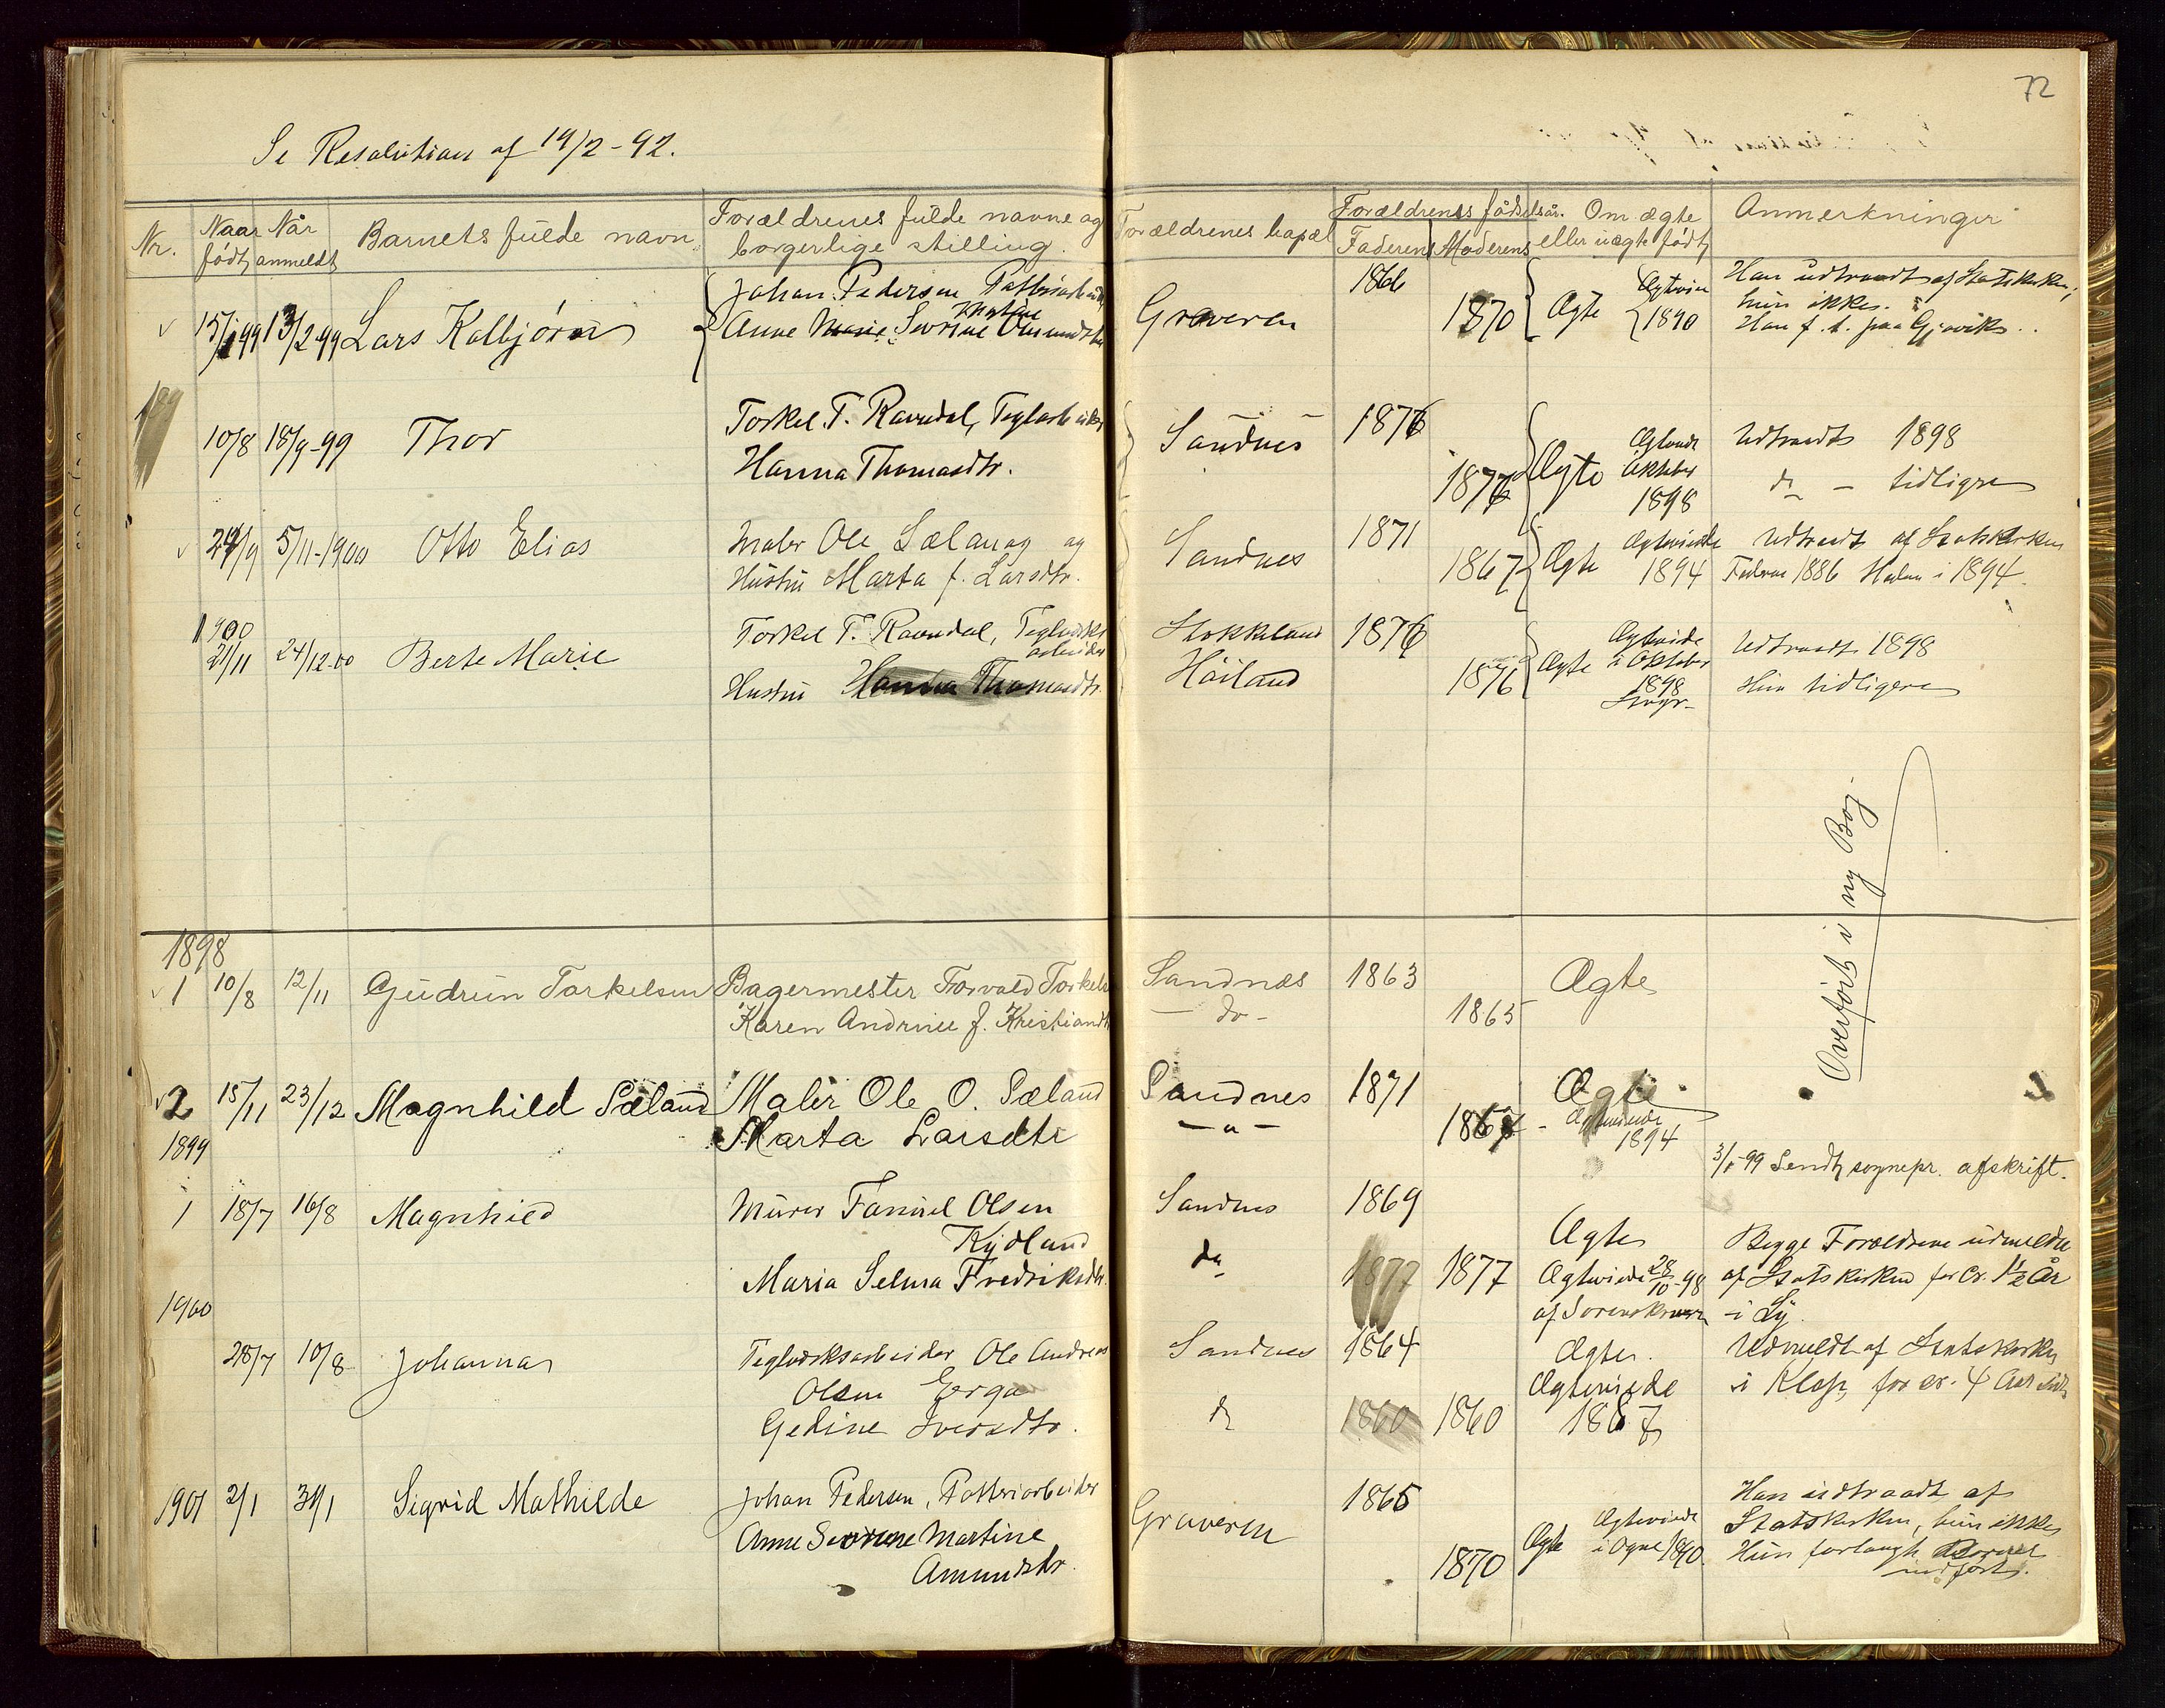 72
Se Resolution af 19/2-92.
Nr. Naar født Når anmeldt Barnets fulde navn Forældrenes fulde navne og borgerlige stilling. Forældrenes bopæl Forældrenes fødselsår. Faderens Moderens Om ægte eller uægte født Anmerkninger
15/1 99 13/2-99 Lars Kolbjørn Johan Pedersen Potteriarbeider Graveren 1866 Ægte Ægtevie 1890 Han udtraadt af Statskirken;
Anne Marie Sørine Martine 1870 hun ikke.
Han f. t. paa Gjøviks.
10/8 18/9-99 Thor Torkel T. Ravndal, Teglarbeider Sandnes 1876 Ægte Udtraadt 1898
Hanna Thomasdtr. 1877 Oktober 1898 do - tidligre
24/9 5/11-1900 Otto Elias Maler Ole Sæland og Sandnes 1871 Ægte Ægteviede Udtraadt af Statskirken
Hustru Marta f. Larsdtr. 1867 1894 Faderen 1886 Moder i 1894.
1900
21/11 24/12-00 Berte Marie Torkel T. Ravndal, Teglværksarbeider Stokkeland 1876 Ægte Ægteviede Udtraadt 1898
Hustru Hanna Thomasdtr. Höiland 1876 i Oktober 1898 Hun tidligere
Overført i ny Bog
1898
1 10/8 12/11 Gudrun Torkelsen Bagermester Torvald Torkels Sandnæs 1863 Ægte
Karen Andrine f. Kristiansd - do - 1865
2 15/11 23/12 Magnhild Sæland Maler Ole O. Sæland Sandnes 1871 Ægte
Marta Larsdtr - " - 1867 Ægteviede 1894
1899
3/1-99 Sendt sognepr. afskrift.
1 18/7 16/8 Magnhild Murer Fanuel Olsen Sandnes 1869 Ægte
Kydland do 1877 1877 Ægteviede 28/10-98 Begge Forældrene udmeldte
Maria Selma Fredriksdtr. af Sorenskriver af Statskirken for cr. 1 1/2 År
i Ly.
1900
28/7 10/8 Johanna Teglværksarbeider Ole Andreas Sandnes 1864 Ægte. Udmeldt af Statskirken
Olsen Erga Ægteviede i Klep, for cr. 4 Aar siden
Gedine Sversdtr. do 1860 1860 1887
1901 2/1 30/1 Sigrid Mathilde Johan Pedersen, Potteriarbeider Graveren 1865 Han udtraadt af
Anne Sørine Martine 1870 Ægte Ægteviede i Ogne 1890 Statskirken, hun ikke
Amundsdtr. Hun forlangte
indført.